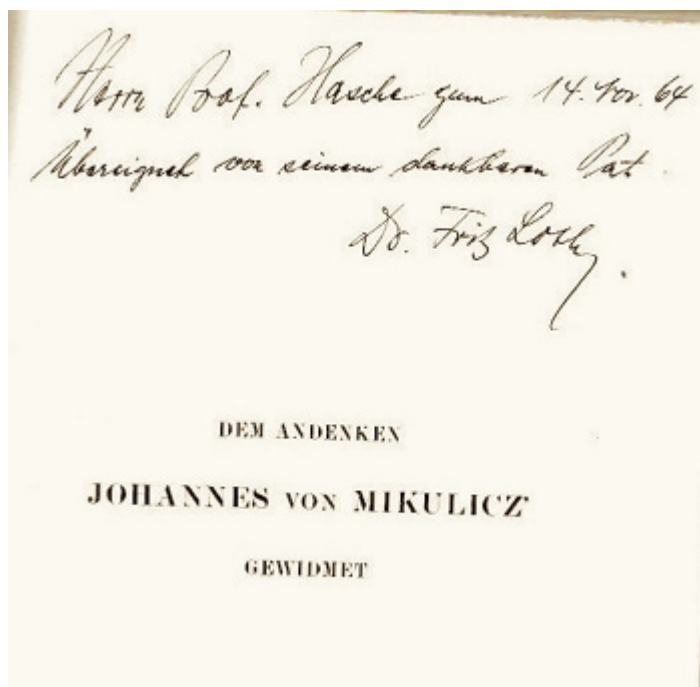 Herrn Prof. Hasche zum 14. Nov. 64
Übereignet von seinem dankbaren Pat.
Dr. Fritz
DEM ANDENKEN
JOHANNES VON MIKULICZ'
GEWIDMET